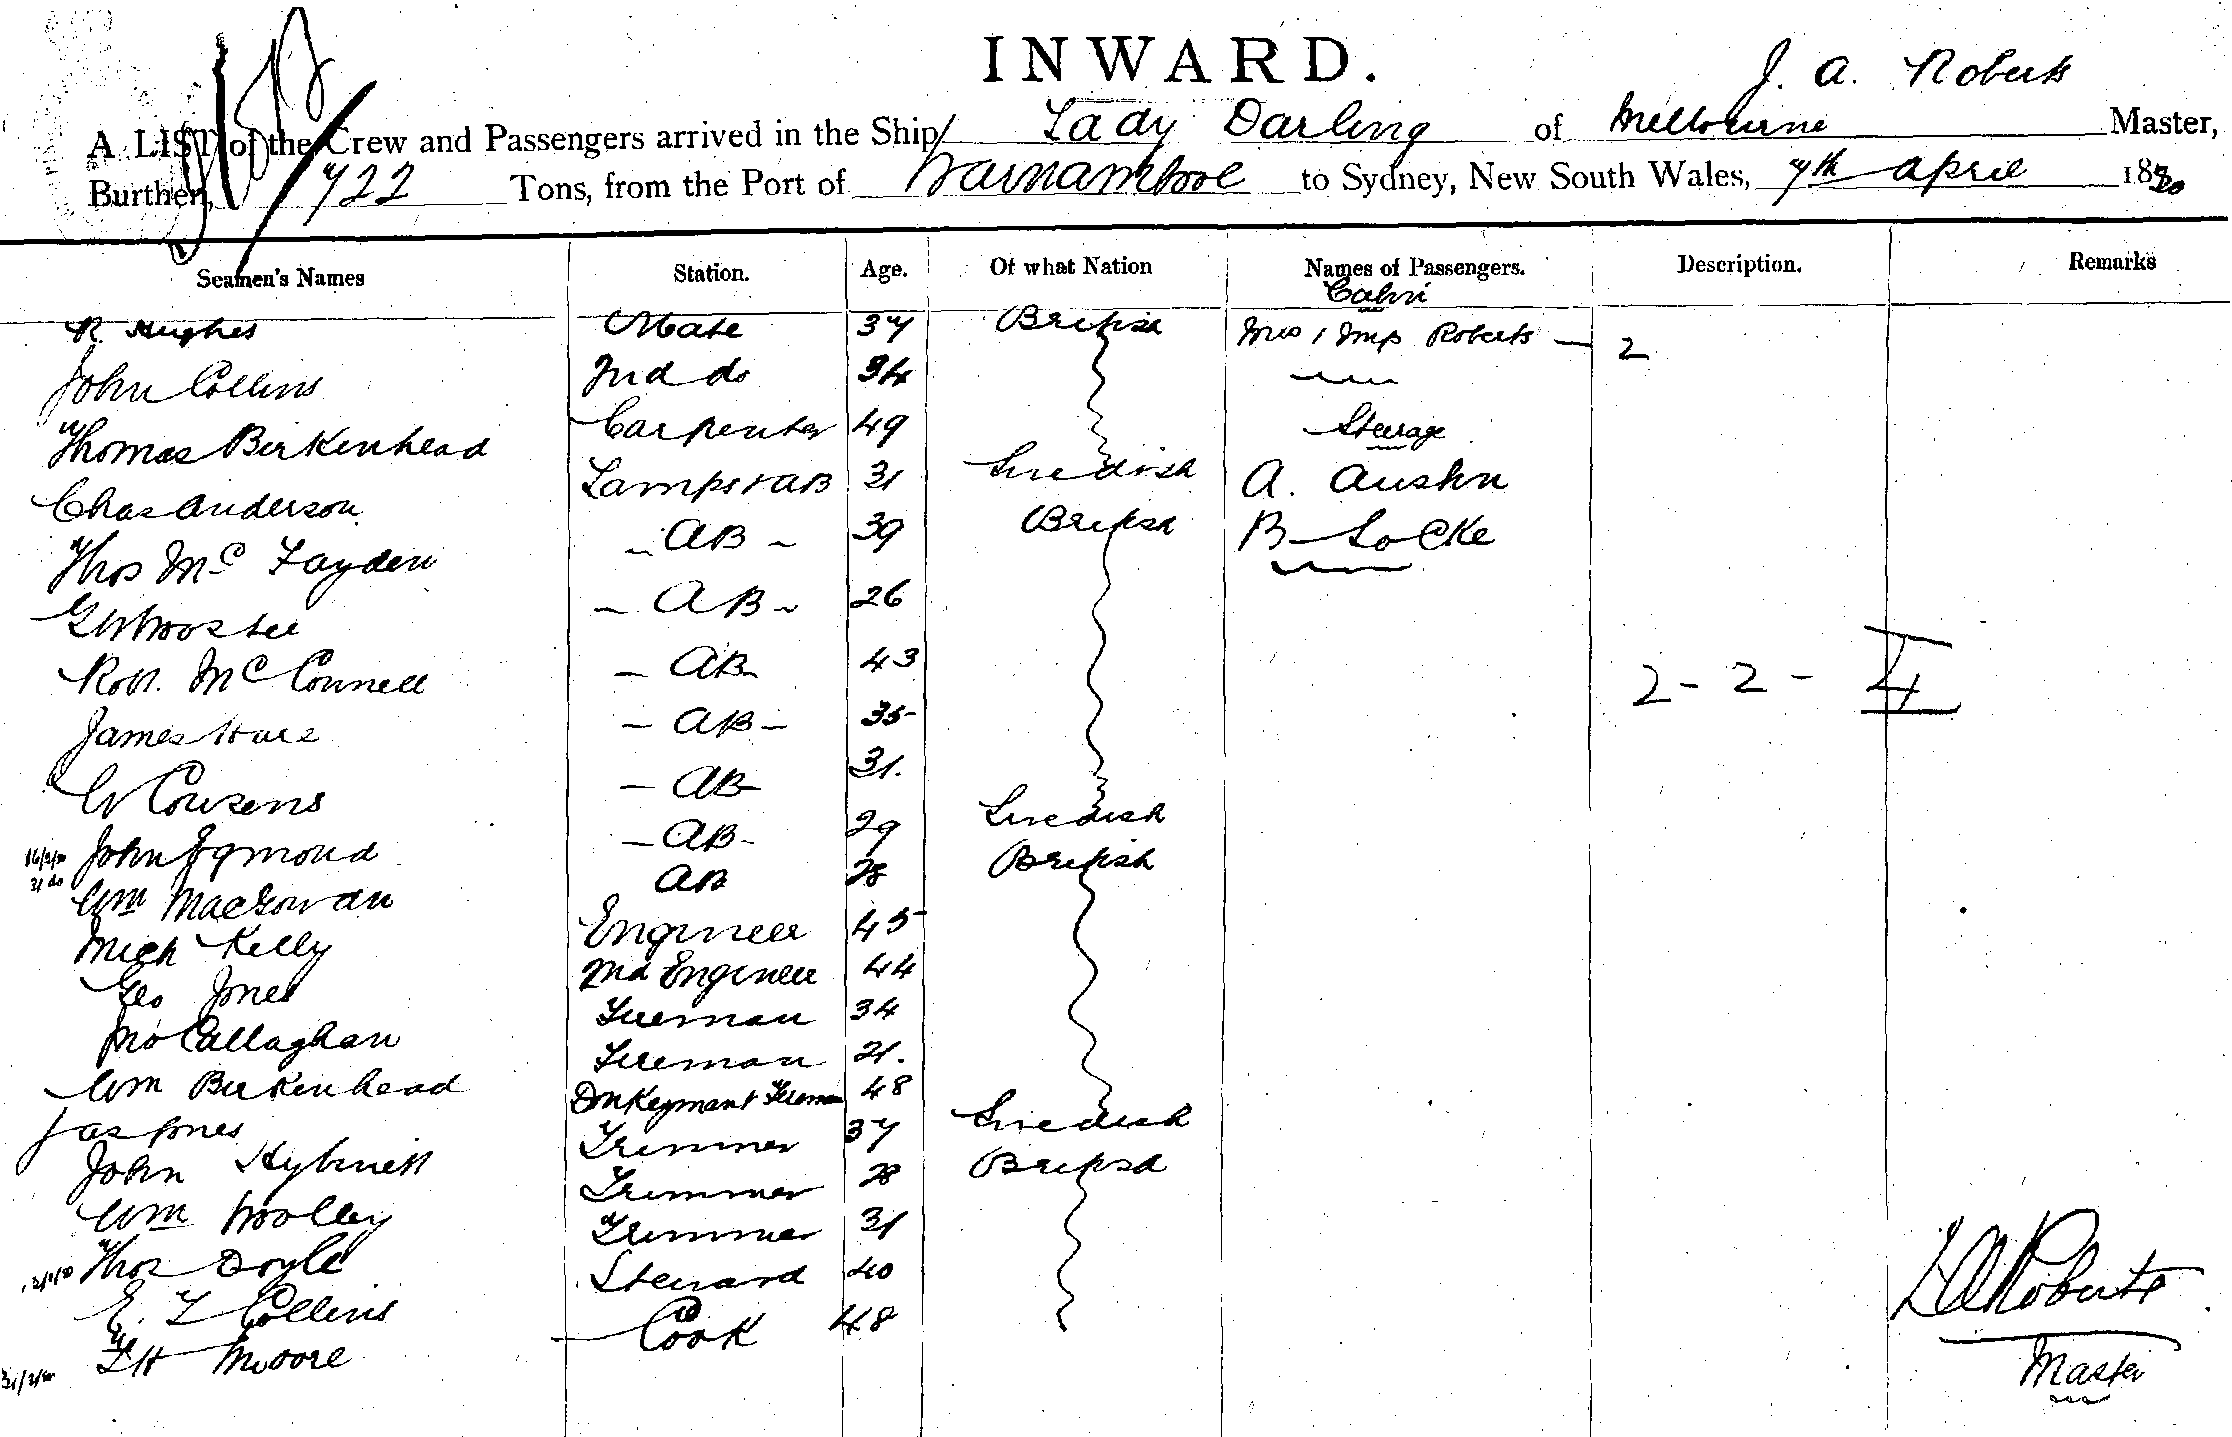 INWARD.
J. A. Roberts
A LIST of the Crew and Passengers arrived in the Ship Lady Darling of Melbourne Master,
Burthen, 722 Tons, from the Port of Warnambool to Sydney, New South Wales, 7th April 18
Seamen's Names Station. Age. Of what Nation Names of Passengers. Description. Remarks
Cabin
R Hughes Mate 37 British Mrs & Miss Roberts — 2
John Collins 2nd do 34
Thomas Birkenhead Carpenter 49 Steerage
Chas Anderson Lamps & AB 31 Swedish A. Austin
Thos McFayden - AB - 39 British B Locke
G Wooster - AB - 26
Robt. McConnell - AB 43 2 - 2 - 4
James Hare - AB - 35
W Cousens - AB 31.
John - AB - 29 Swedish
Wm MacGowan AB 28 British
Mich Kelly Engineer 45
Geo Jones 2nd Engineer 44
Jno Callaghan Fireman 34
Wm Birkenhead Fireman 21.
Jas Jones Donkeyman & Fireman 48
John Trimmer 37 Swedish
Wm Woolley Trimmer 28 British
Thos Doyle Trimmer 31
E. F Collins Steward 40
F H Moore Cook 48
J A Roberts
Master